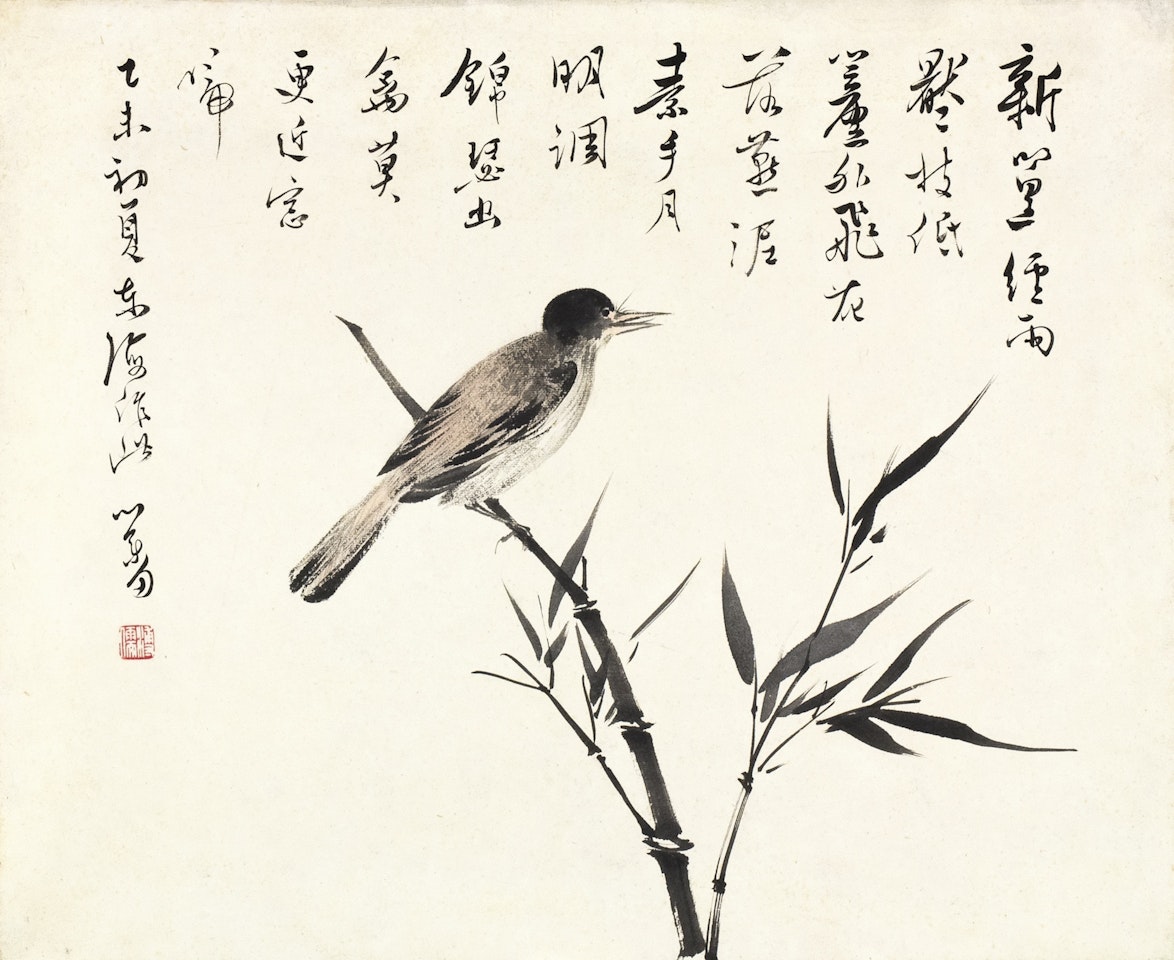 新篁經雨
壓枝低
簾外飛花
落燕泥
素手月
明調
錦瑟幽
禽莫
更近窗
啼
乙未初夏東海作此 心畬
溥儒